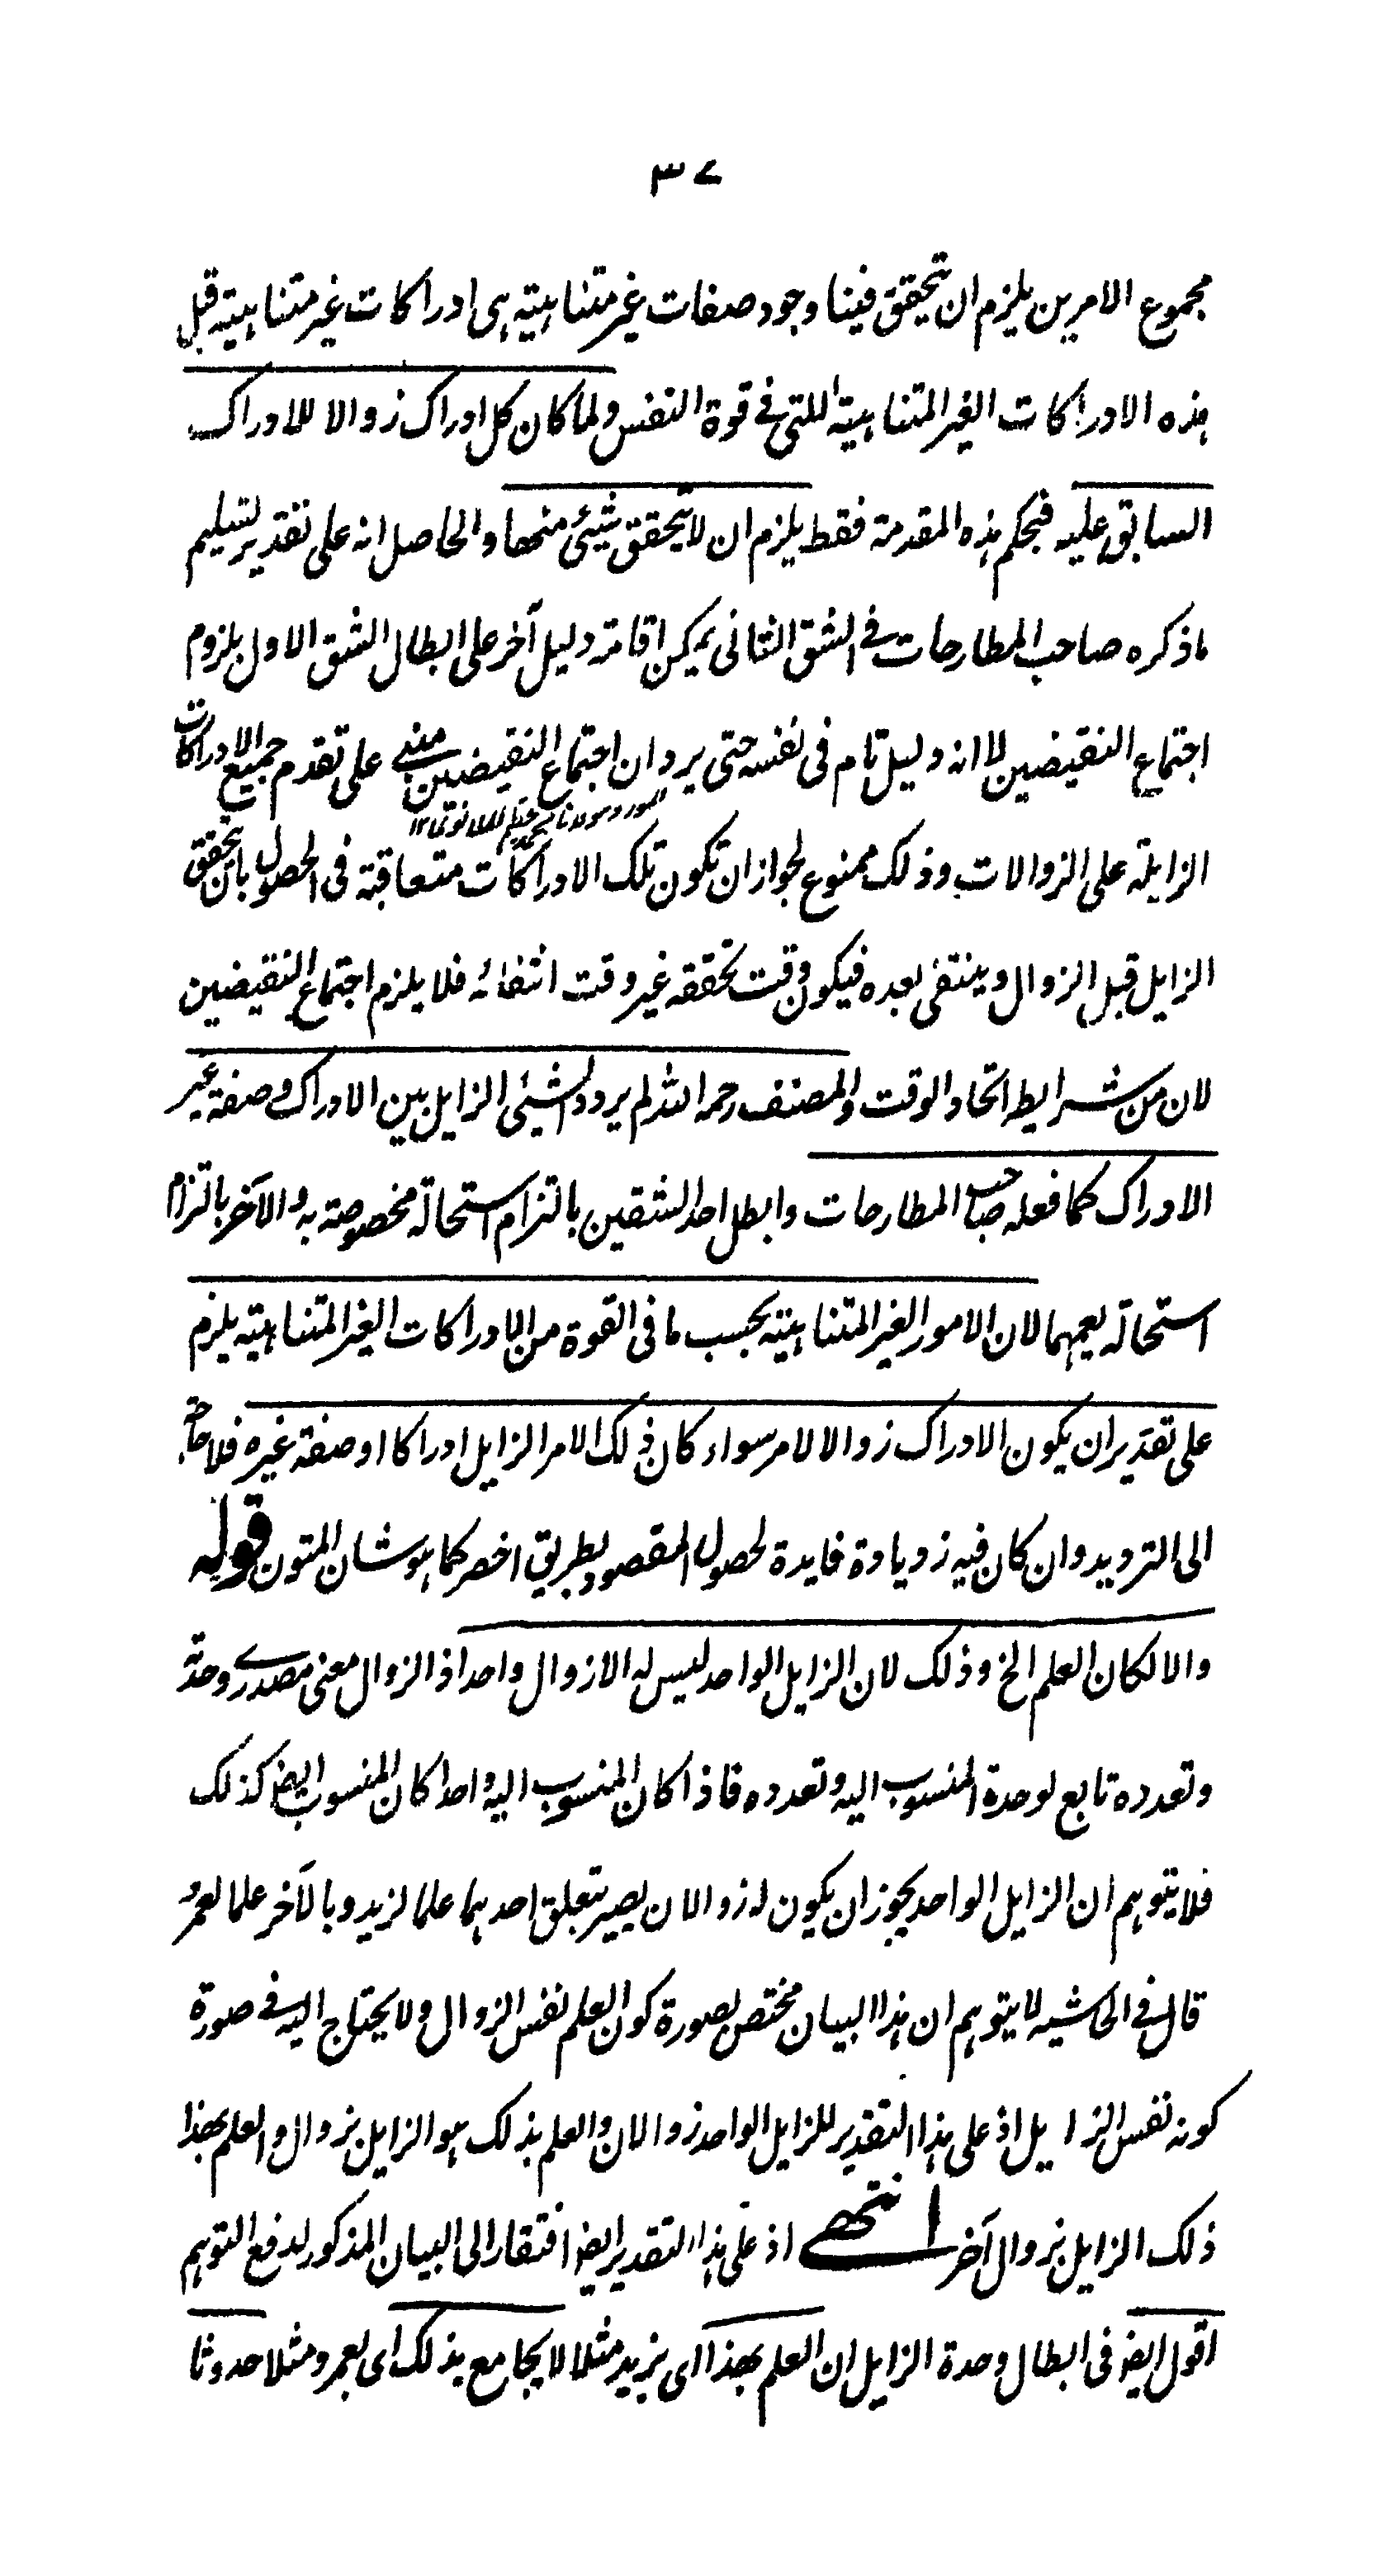 ٣٧
مجموع الامرين يلزم ان يتحقق فينا وجود صفات غير متناهية هى ادراكات غير متناهية قبل
هذه الادراكات الغير المتناهية اللتى فى قوة النفس ولما كان كل ادراك زوالا للادراك
السابق عليه فبحكم هذه المقدمة فقط يلزم ان لا يتحقق شيئ منها والحاصل انه على تقدير تسليم
ماذكره صاحب المطارحات فى الشق الثانى يمكن اقامة دليل آخر على ابطال الشق الاول بلزوم
اجتماع النقيضين لا انه دليل تام فى نفسه حتى يرد ان اجتماع النقيضين مبنے على تقدم جميع الادراكات
المورد مولانا
الزايلة على الزوالات وذلك ممنوع لجواز ان تكون تلك الادراكات متعاقبة فى الحصول بان يتحقق
الزايل قبل الزوال وينتفى بعده فيكون وقت تحققه غير وقت انتفائه فلا يلزم اجتماع النقيضين
لان من شرايطه اتحاد الوقت والمصنف رحمه الله لم يردد الشيئ الزايل بين الادراك وصفة غير
الادراك كما فعله صاحب المطارحات وابطل احد الشقين بالتزام استحالة مخصوصة به والآخر بالتزام
استحالة يعمهما لان الامور الغير المتناهية بحسب ما فى القوة من الادراكات الغير المتناهية يلزم
على تقدير ان يكون الادراك زوالا لامر سواء كان ذلك الامر الزايل ادراكا او صفة غيره فلا حاجة
الى الترديد وان كان فيه زديادة فايدة لحصول المقصود بطريق اخصر كما هو شان المتون قوله
والا لكان العلم الخ وذلك لان الزايل الواحد ليس له الا زوال واحد اذ الزوال معنى مصدرے وحدته
وتعدده تابع لوحدة المنسوب اليه وتعدده فاذا كان المنسوب اليه واحدا كان المنسوب ايض كذلك
فلا يتوهم ان الزايل الواحد يجوز ان يكون له زوالان يصير بتعلق احدهما علما لزيد وبالآخر علما لعمرو
قال فى الحاشيه لا يتوهم ان هذا البيان مختص بصورة كون العلم نفس الزوال ولا يحتاج اليه فى صورة
كونه نفس الزايل اذ على هذا التقدير للزايل الواحد زوالان والعلم بذلك هو الزايل بزوال والعلم بهذا
ذلك الزايل بزوال آخر انتهے اذ على هذا التقدير ايض افتقار الى البيان المذكور لدفع التوهم
اقول ايض فى ابطال وحدة الزايل ان العلم بهذا اى بزيد مثلا لا يجامع بذلك اى بعمرو مثلا حدوثا